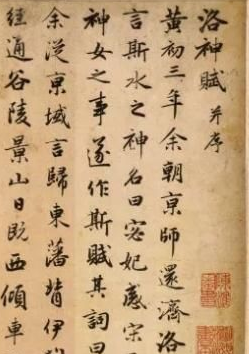 洛神賦 并序
黄初三年余朝京師還濟洛
言斯水之神名曰宓妃感宋
神女之事遂作斯賦其詞曰
余從京域言歸東藩背伊
經通谷陵景山日既西傾車